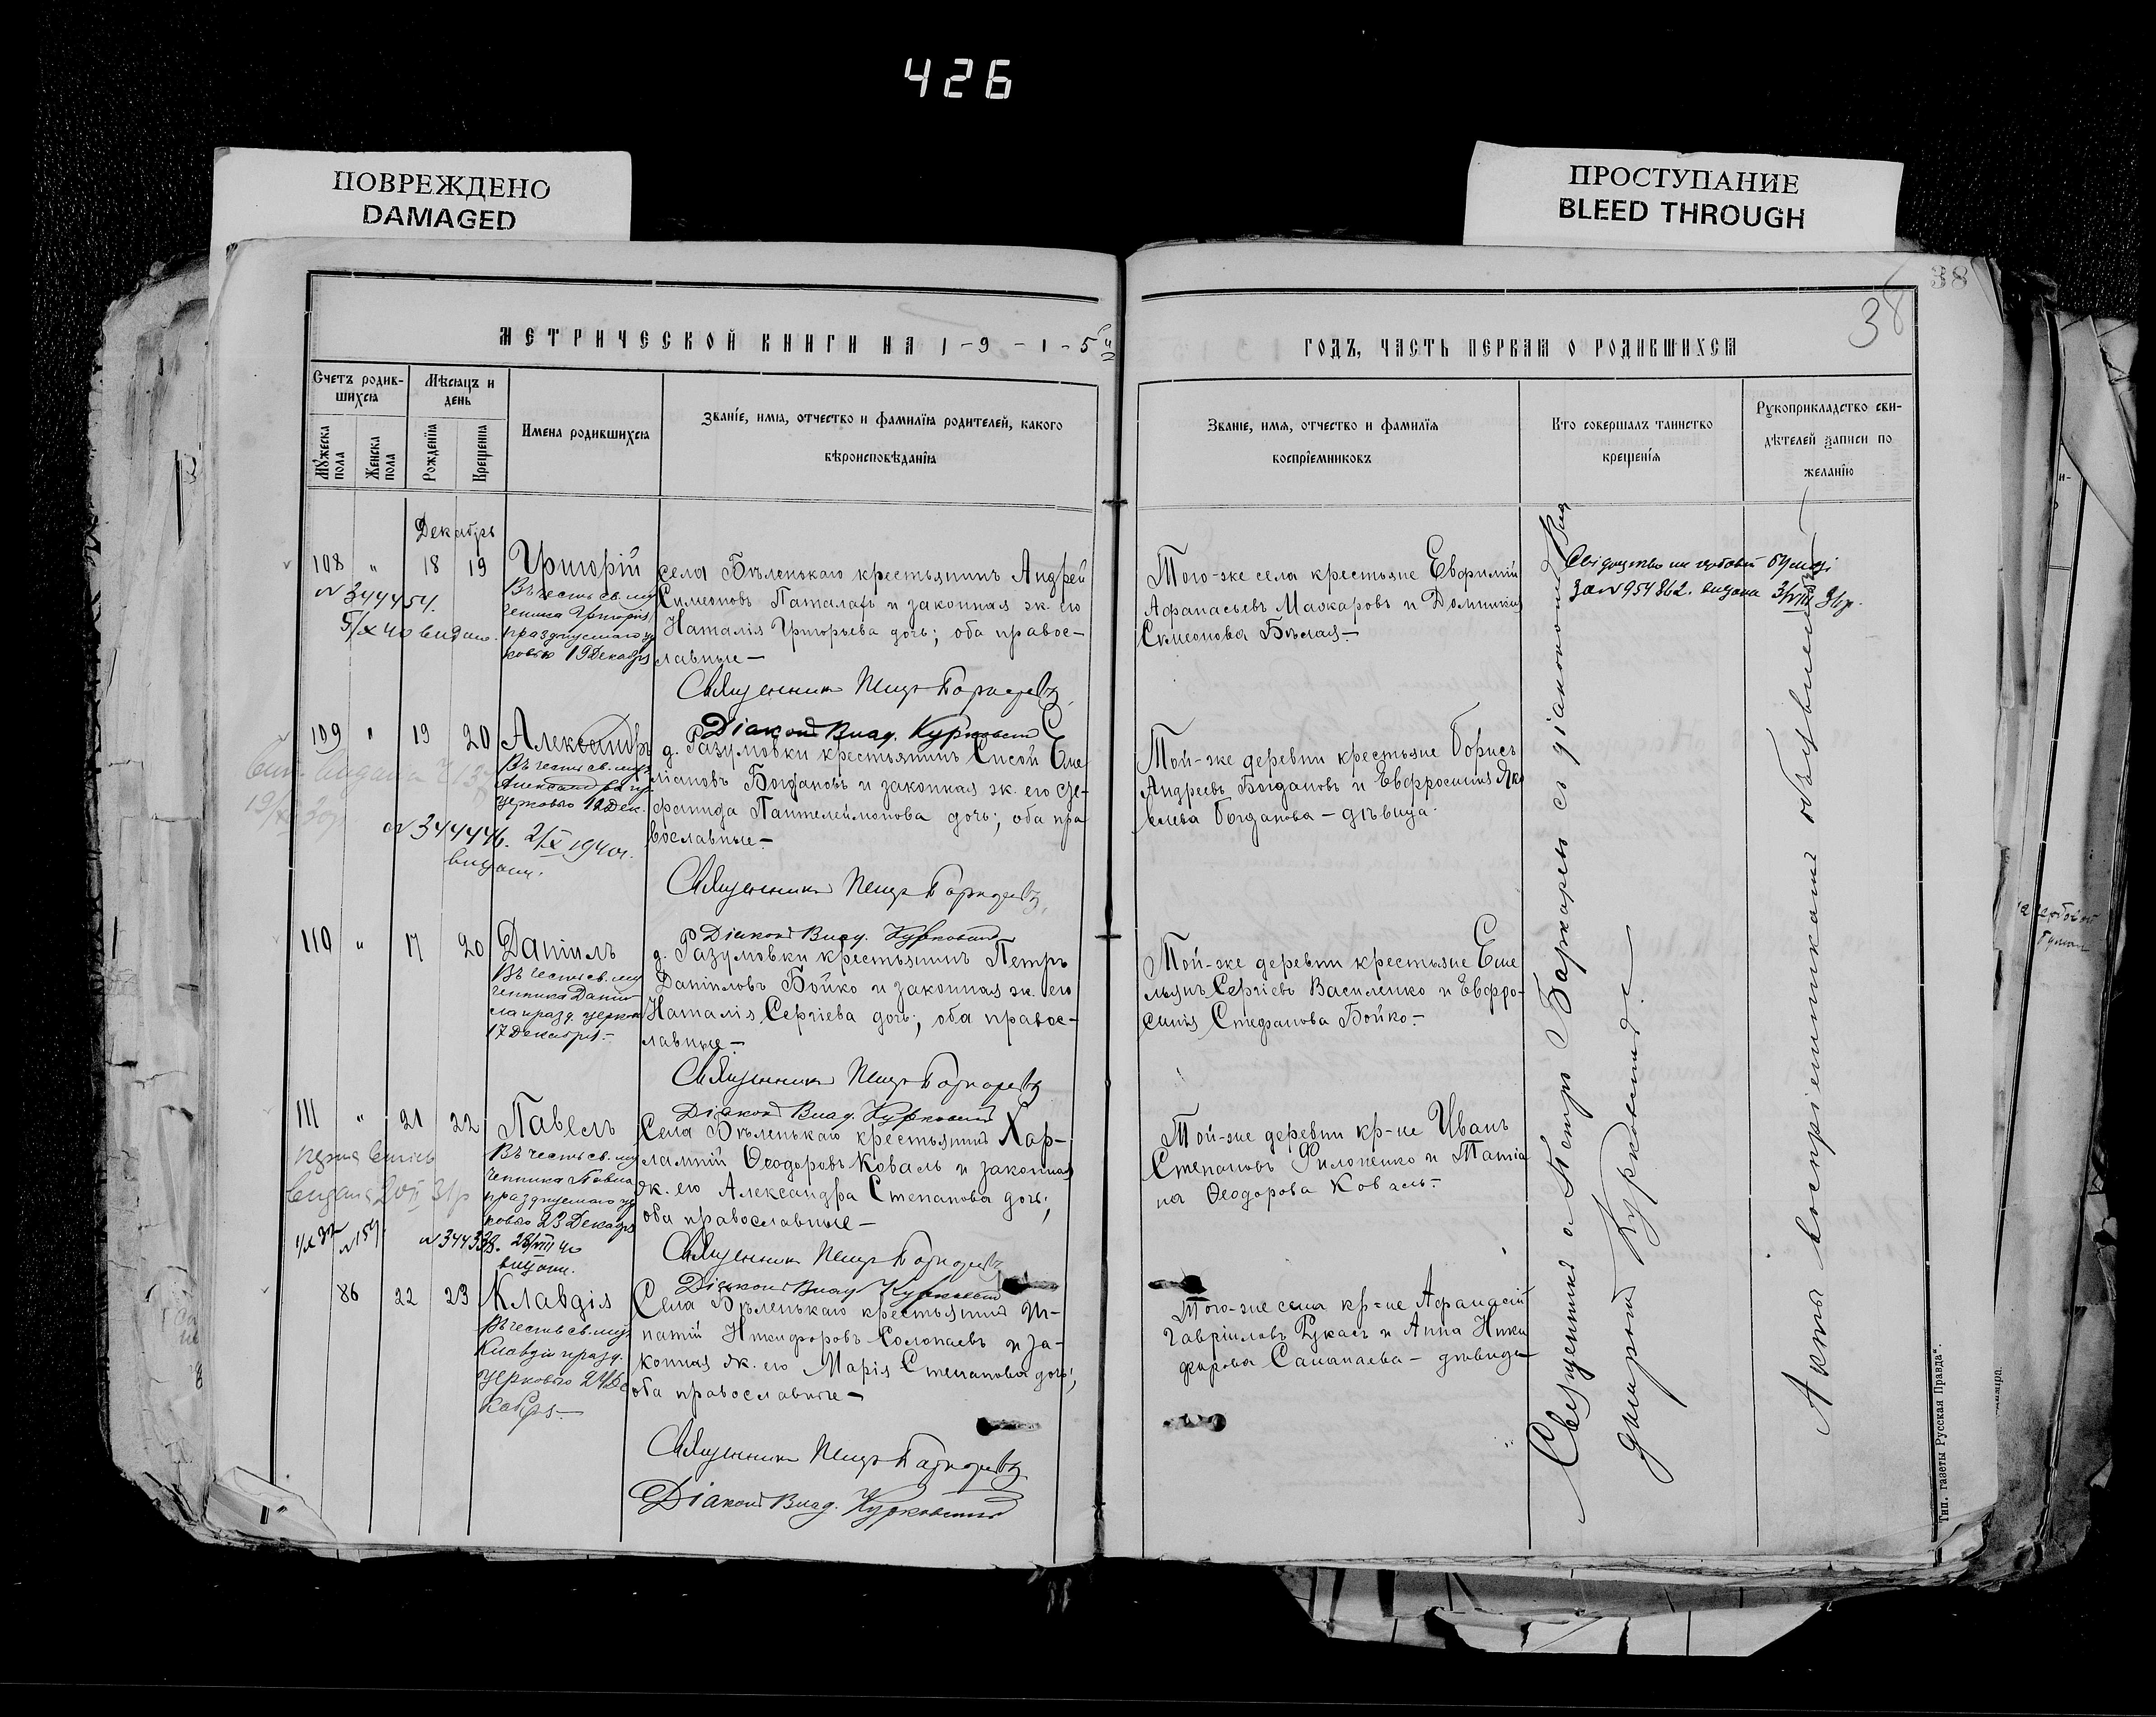 426
ПОВРЕЖДЕНО
DAMAGED
ПРОСТУПАНИЕ
BLEED THROUGH
38
38
МЕТРИЧЕСКОЙ КНИГИ НА 1-9-1-5й
ГОДЪ, ЧАСТЬ ПЕРВАЯ О РОДИВШИХСЯ
Счетъ родив-
шихся
Мужеска
пола
Женска
пола
Мѣсяцъ и
день
Рожденія
Крещенія
Имена родившихся
Званіе, имя, отчество и фамилія родителей, какого
вѣроисповѣданія
Званіе, имя, отчество и фамилія
воспріемниковъ
Кто совершалъ таинство
крещенія
Рукоприкладство сви-
дѣтелей записи по
желанію
Декабрь
108 " 18 19 Григорій
№344454.
5/X 40 видано.
Въ честь св. му
ченика Григорія
празднуемаго цер
ковью 19 Декабря
села Бѣленькаго крестьянинъ Андрей
Симеоновъ Паталахъ и законная ж. его
Наталія Григорьева дочь; оба правос-
лавные—
Священникъ Петръ Боркаревъ
Діаконъ Влад. Курковскій
Того-же села крестьяне Евфимій
Афанасьевъ Маскаровъ и Домникія
Симеонова Бѣлая—
Свідоцтво на гербовій бумазі
за №954862. видана 3/VIII 31р.
109 " 19 20 Александръ
Въ честь св. муч.
Александра пр.
церковью 12 Дек.
видана
№344446. 2/X 1940г.
видано.
д. Разумовки крестьянинъ Сисой Еме
ліановъ Богдановъ и законная ж. его
Пантелеймонова дочь; оба пра
вославные—
Священникъ Петръ Боркаревъ
Діаконъ Влад. Курковскій
Той-же деревни крестьяне Борисъ
Андреевъ Богдановъ и Евфросинія Яко
влева Богданова – дѣвица.
110 " 17 20 Даніилъ
Въ честь св. му
ченика Дании
ла празд. церков
17 Декабря.—
д. Разумовки крестьянинъ Петръ
Даніиловъ Бойко и законная ж. его
Наталія Сергіева дочь; оба правос-
лавные—
Священникъ Петръ Боркаревъ
Діаконъ Влад. Курковскій
Той-же деревни крестьяне Еме
льянъ Сергіевъ Василенко и Евфро-
синія Стефанова Бойко.—
111 " 21 22 Павелъ
видана 20/II 31р
№159.
№344338. 28/VIII 40
видано.
Въ честь св. му
ченика Павла
празднуемаго цер
ковью 23 Декабря
Села Бѣленькаго крестьянинъ Хар-
лампій Ѳеодоровъ Коваль и законная
ж. его Александра Степанова дочь;
оба православные—
Священникъ Петръ Боркаревъ
Діаконъ Влад. Курковскій
Той-же деревни кр-не Иванъ
Степановъ Филоненко и Татіа
на Ѳеодорова Коваль.—
86 22 23 Клавдія
Въ честь св. муч.
Клавдіи празд.
церковью 24 Де
кабря.—
Села Бѣленькаго крестьянинъ И-
патій Никифоровъ Солопаевъ и за-
конная ж. его Марія Степанова дочь;
оба православные—
Священникъ Петръ Боркаревъ
Діаконъ Влад. Курковскій
Того-же села кр-не Афанасій
Гавріиловъ Рукасъ и Анна Ники
форова Саланаева – дѣвица
Священникъ о. Петръ Боркаревъ съ діакономъ Вла
диміромъ Курковскимъ.—
Акты воспріемниками обозрѣны
Тип. газеты „Русская Правда".